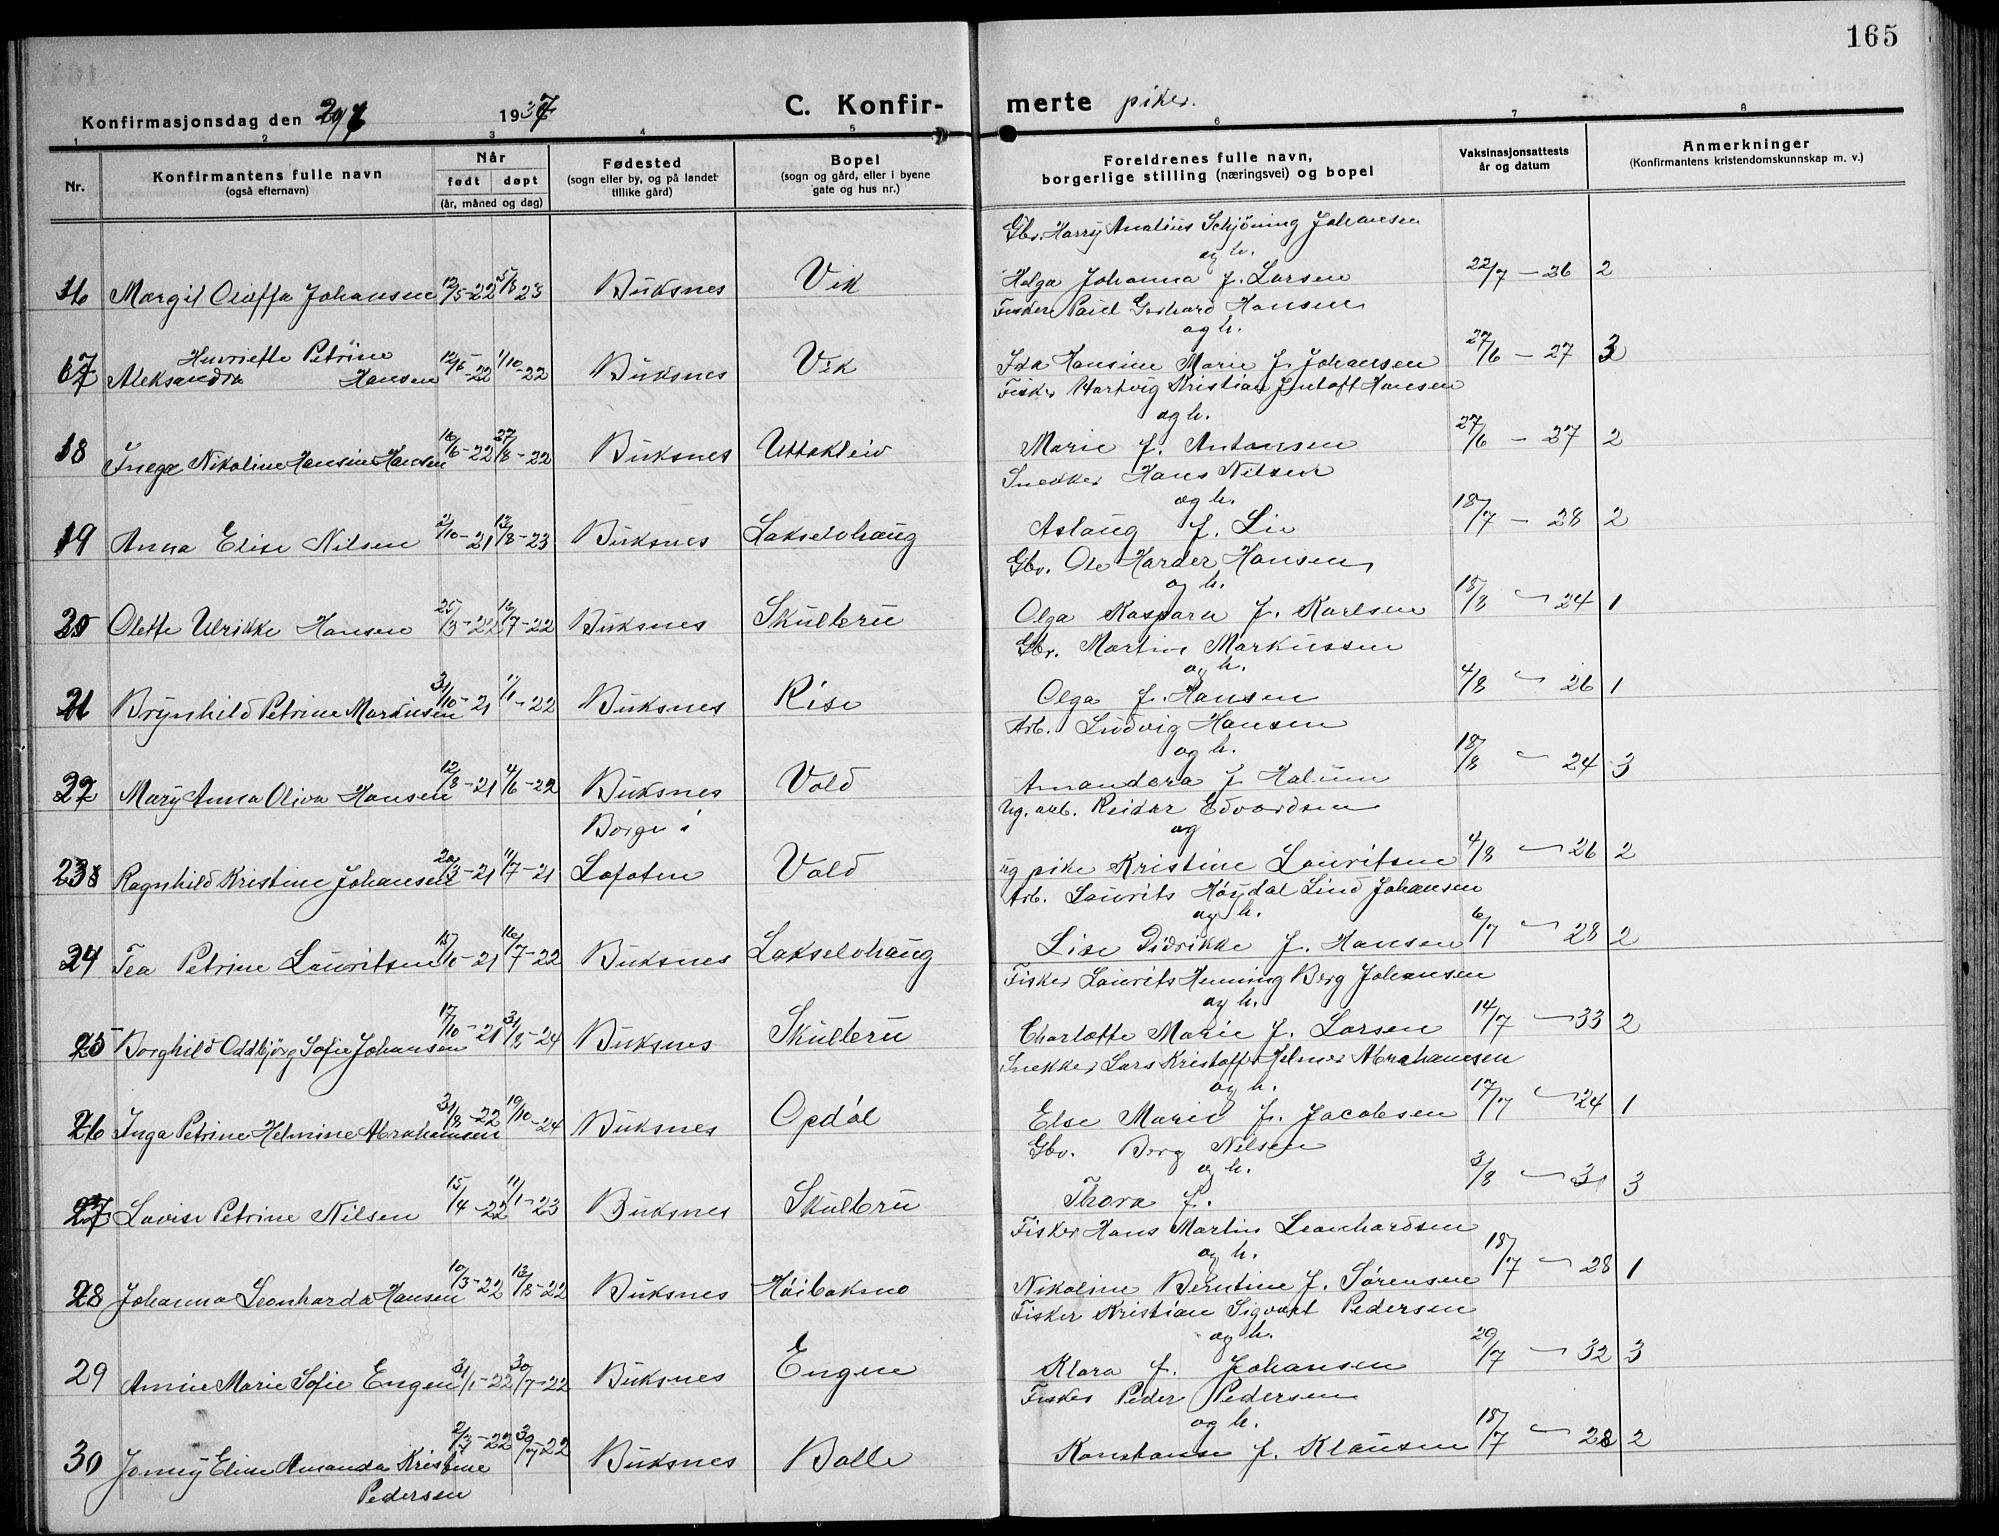 165
Konfirmasjonsdag den 29/6 1937 C. Konfir- merte piker.
1 2 3 4 5 6 7 8
Nr. Konfirmantens fulle navn (også efternavn) Når født døpt (år, måned og dag) Fødested (sogn eller by, og på landet tillike gård) Bopel (sogn og gård, eller i byene gate og hus nr.) Foreldrenes fulle navn, borgerlige stilling (næringsvei) og bopel Vaksinasjonsattests år og datum Anmerkninger (Konfirmantens kristendomskunnskap m. v.)
Gbr. Harry Analius Schjöning Johansen
og h.
16 Margit Olaffa Johansen 12/5-22 5/8 23 Buksnes Vik Helga Johanna f. Larsen 22/7 - 26 2
Fisker Paul Gerhard Hansen
og h.
17 Henriette Petrine Aleksandra Hansen 12/5-22 1/10-22 Buksnes Vik Ida Hansine Marie f. Johansen 27/6 - 27 3
Fisker Hartvig Kristian Jentoft Hansen
og h.
18 Inega Nikoline Hansine Hansen 16/6-22 27/8-22 Buksnes Uttakleiv Marie f. Antonsen 27/6 - 27 2
Snekker Hans Nilsen
og h.
19 Anna Elise Nilsen 2/10-21 12/8-23 Buksnes Lakselvhaug Aslaug f. Lie 18/7 - 28 2
Gbr. Ole Harder Hansen
og h.
20 Olette Ulrikke Hansen 25/3-22 16/7-22 Buksnes Skulbru Olga Kaspara f. Karlsen 18/8 - 24 1
Gbr. Martin Markussen
og h.
21 Brynhild Petrine Markusen 31/10-21 1/1-22 Buksnes Rise Olga f. Hansen 4/8 - 26 1
Arb. Ludvig Hansen
og h.
22 Mary Anna Oliva Hansen 12/8-21 4/6-22 Buksnes Vold Amandora f. Halum 18/8 - 24 3
Ug. arb. Reidar Edvardsen
og
23 Ragnhild Kristine Johansen 20/3-21 11/7-21 Borge i Lofoten Vold ug pike Kristine Lauritsen 4/8 - 26 2
Arb. Laurits Höydal Lind Johansen
og h.
24 Tea Petrine Lauritsen 15/10-21 16/7-22 Buksnes Lakselvhaug Lise Didrikke f. Hansen 6/7 - 28 2
Fisker Laurits Henning Berg Johansen
og h.
25 Borghild Oddbjörg Sofie Johansen 17/10-21 31/8-24 Buksnes Skulbru Charlotte Marie f. Larsen 14/7 - 33 2
Snekker Lars Kristoffer Helmer Abrahamsen
og h.
26 Inga Petrine Helmine Abrahamsen 31/8-22 19/10-24 Buksnes Opdöl Else Marie f. Jacobsen 17/7 - 24 1
Gbr. Berg Nilsen
og h.
27 Lovise Petrine Nilsen 15/4-22 11/1-23 Buksnes Skulbru Thora f. 3/8 - 31 3
Fisker Hans Martin Leonhardsen
og h.
28 Johanna Leonharda Hansen 10/3-22 13/8-22 Buksnes Höibakmo Nikoline Berntine f. Sørensen 18/7 - 28 1
Fisker Kristian Sigvart Pedersen
og h.
29 Annie Marie Sofie Engen 31/1-22 30/7-22 Buksnes Engen Klara f. Johansen 29/7 - 32 3
Fisker Peder Pedersen
og h.
30 Jonny Elise Amanda Kristine Pedersen 2/3-22 30/7-22 Buksnes Balle Konstanse f. Klausen 18/7 - 28 2